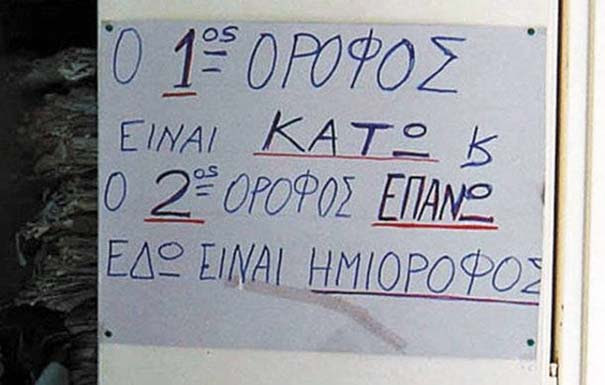 Ο 1ος ΟΡΟΦΟΣ
ΕΙΝΑΙ ΚΑΤΩ ϗ
Ο 2ος ΟΡΟΦΟΣ ΕΠΑΝΩ
ΕΔΩ ΕΙΝΑΙ ΗΜΙΟΡΟΦΟΣ